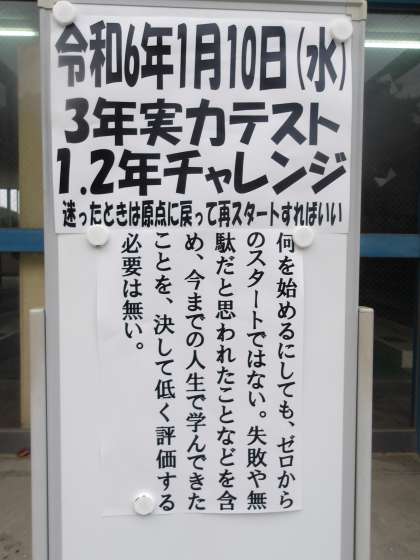 令和6年1月10日(水)
3年実力テスト
1.2年チャレンジ
迷ったときは原点に戻って再スタートすればいい
何を始めるにしても、ゼロから
のスタートではない。失敗や無
駄だと思われたことなどを含
め、今までの人生で学んできた
ことを、決して低く評価する
必要は無い。